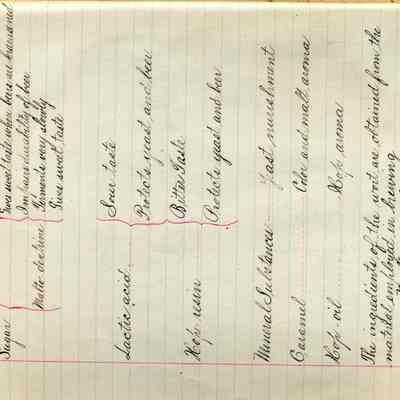 Sugar
Gives sweet taste when beers are
Malto-dextrine
Increases durability of beer
Ferments very slowly
Gives sweet taste
Lactic acid
Sour taste
Protects yeast and beer
Hop resin
Bitter Taste
Protects yeast and beer
Mineral Substances
Yeast nourishment
Caramel
Color and malt aroma
Hop-oil
Hop aroma
The ingredients of the wort are obtained from the
material employed in brewing